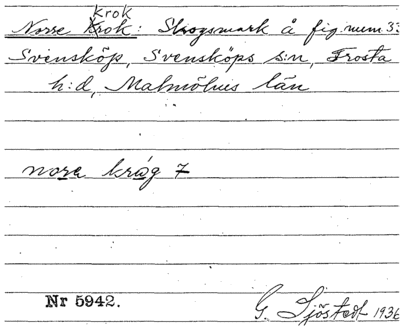 Krok
Norre Krok: Skogsmark å fig. num 3:
Svensköp, Svensköps s:n, Frosta
h:d, Malmöhus län
nora kråg 7
Nr 5942.
G. Sjöstedt 1936